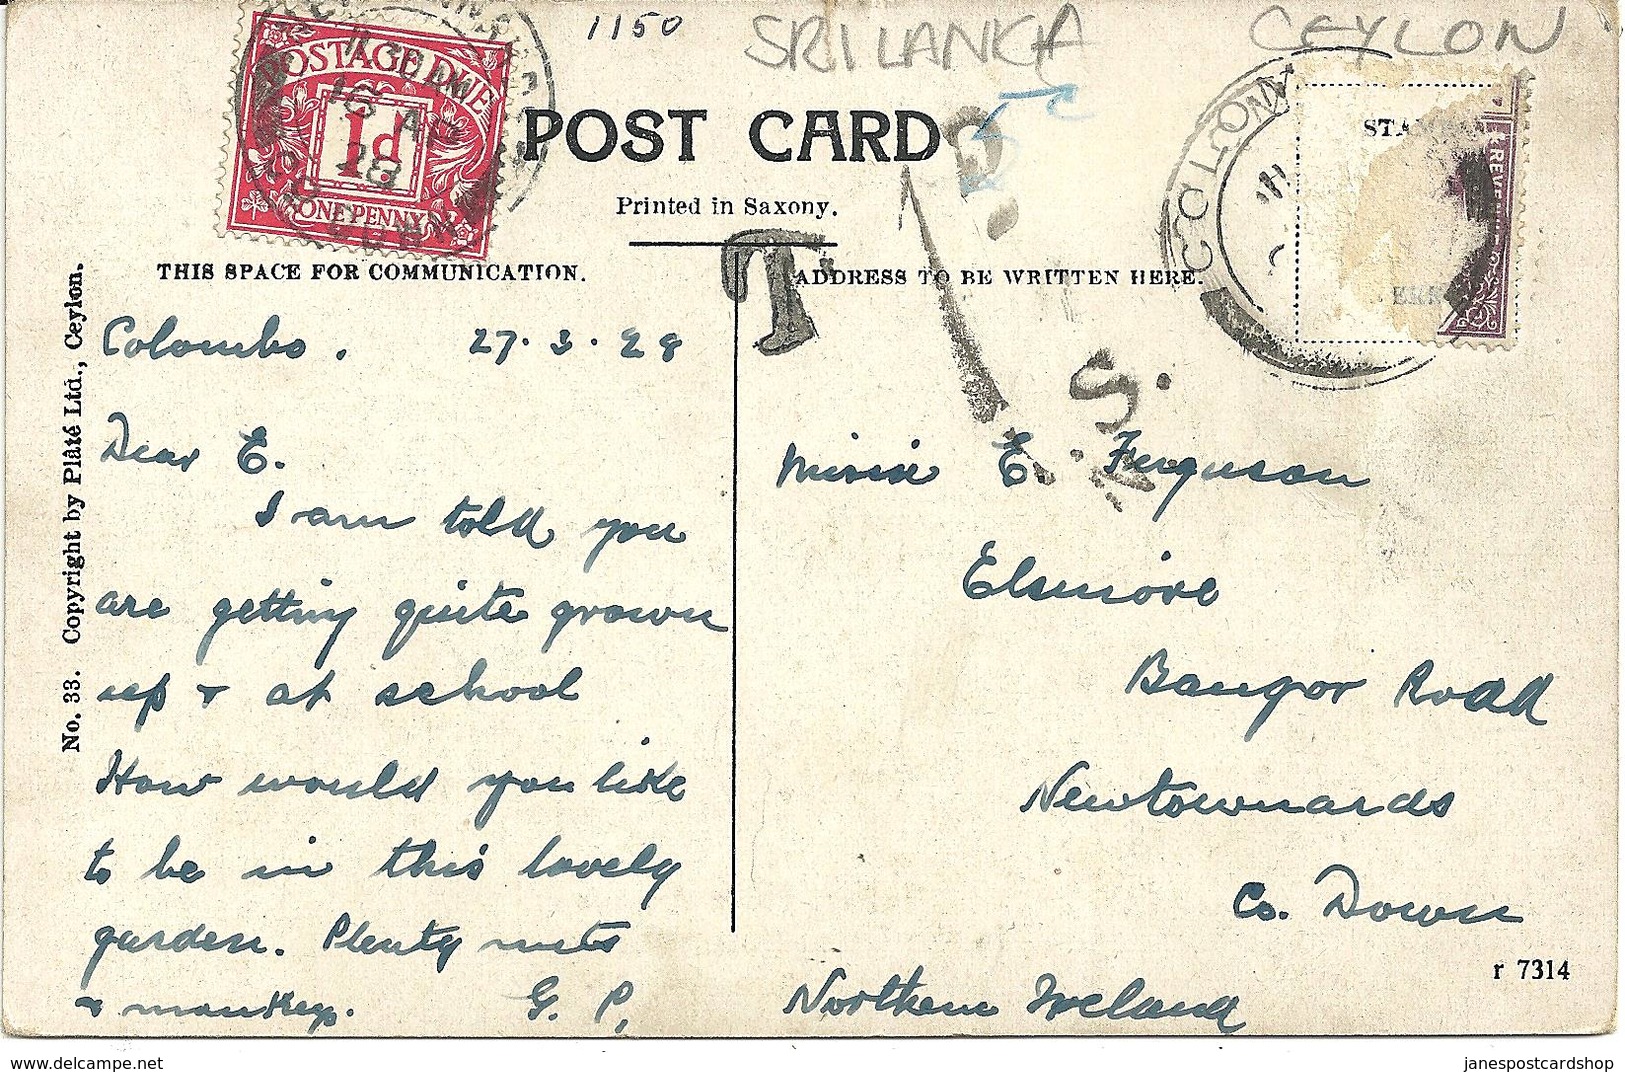 1150
SRI LANKA
CEYLON
5c
POSTAGE DUE
16 AP
28
1d
ONE PENNY
POST CARD
Printed in Saxony.
COLOM
STAM
T
THIS SPACE FOR COMMUNICATION.
ADDRESS TO BE WRITTEN HERE.
No. 33. Copyright by Plâté Ltd., Ceylon.
Colombo. 27.3.28
Dear E.
I am told you
are getting quite grown
up & at school
How would you like
to be in this lovely
garden. Plenty nuts
& monkeys. G. P.
I.S.
Missie E. Ferguson
Elsmore
Bangor Road
Newtownards
Co. Down
Northern Ireland
r 7314
janespostcardshop
delcampe.net